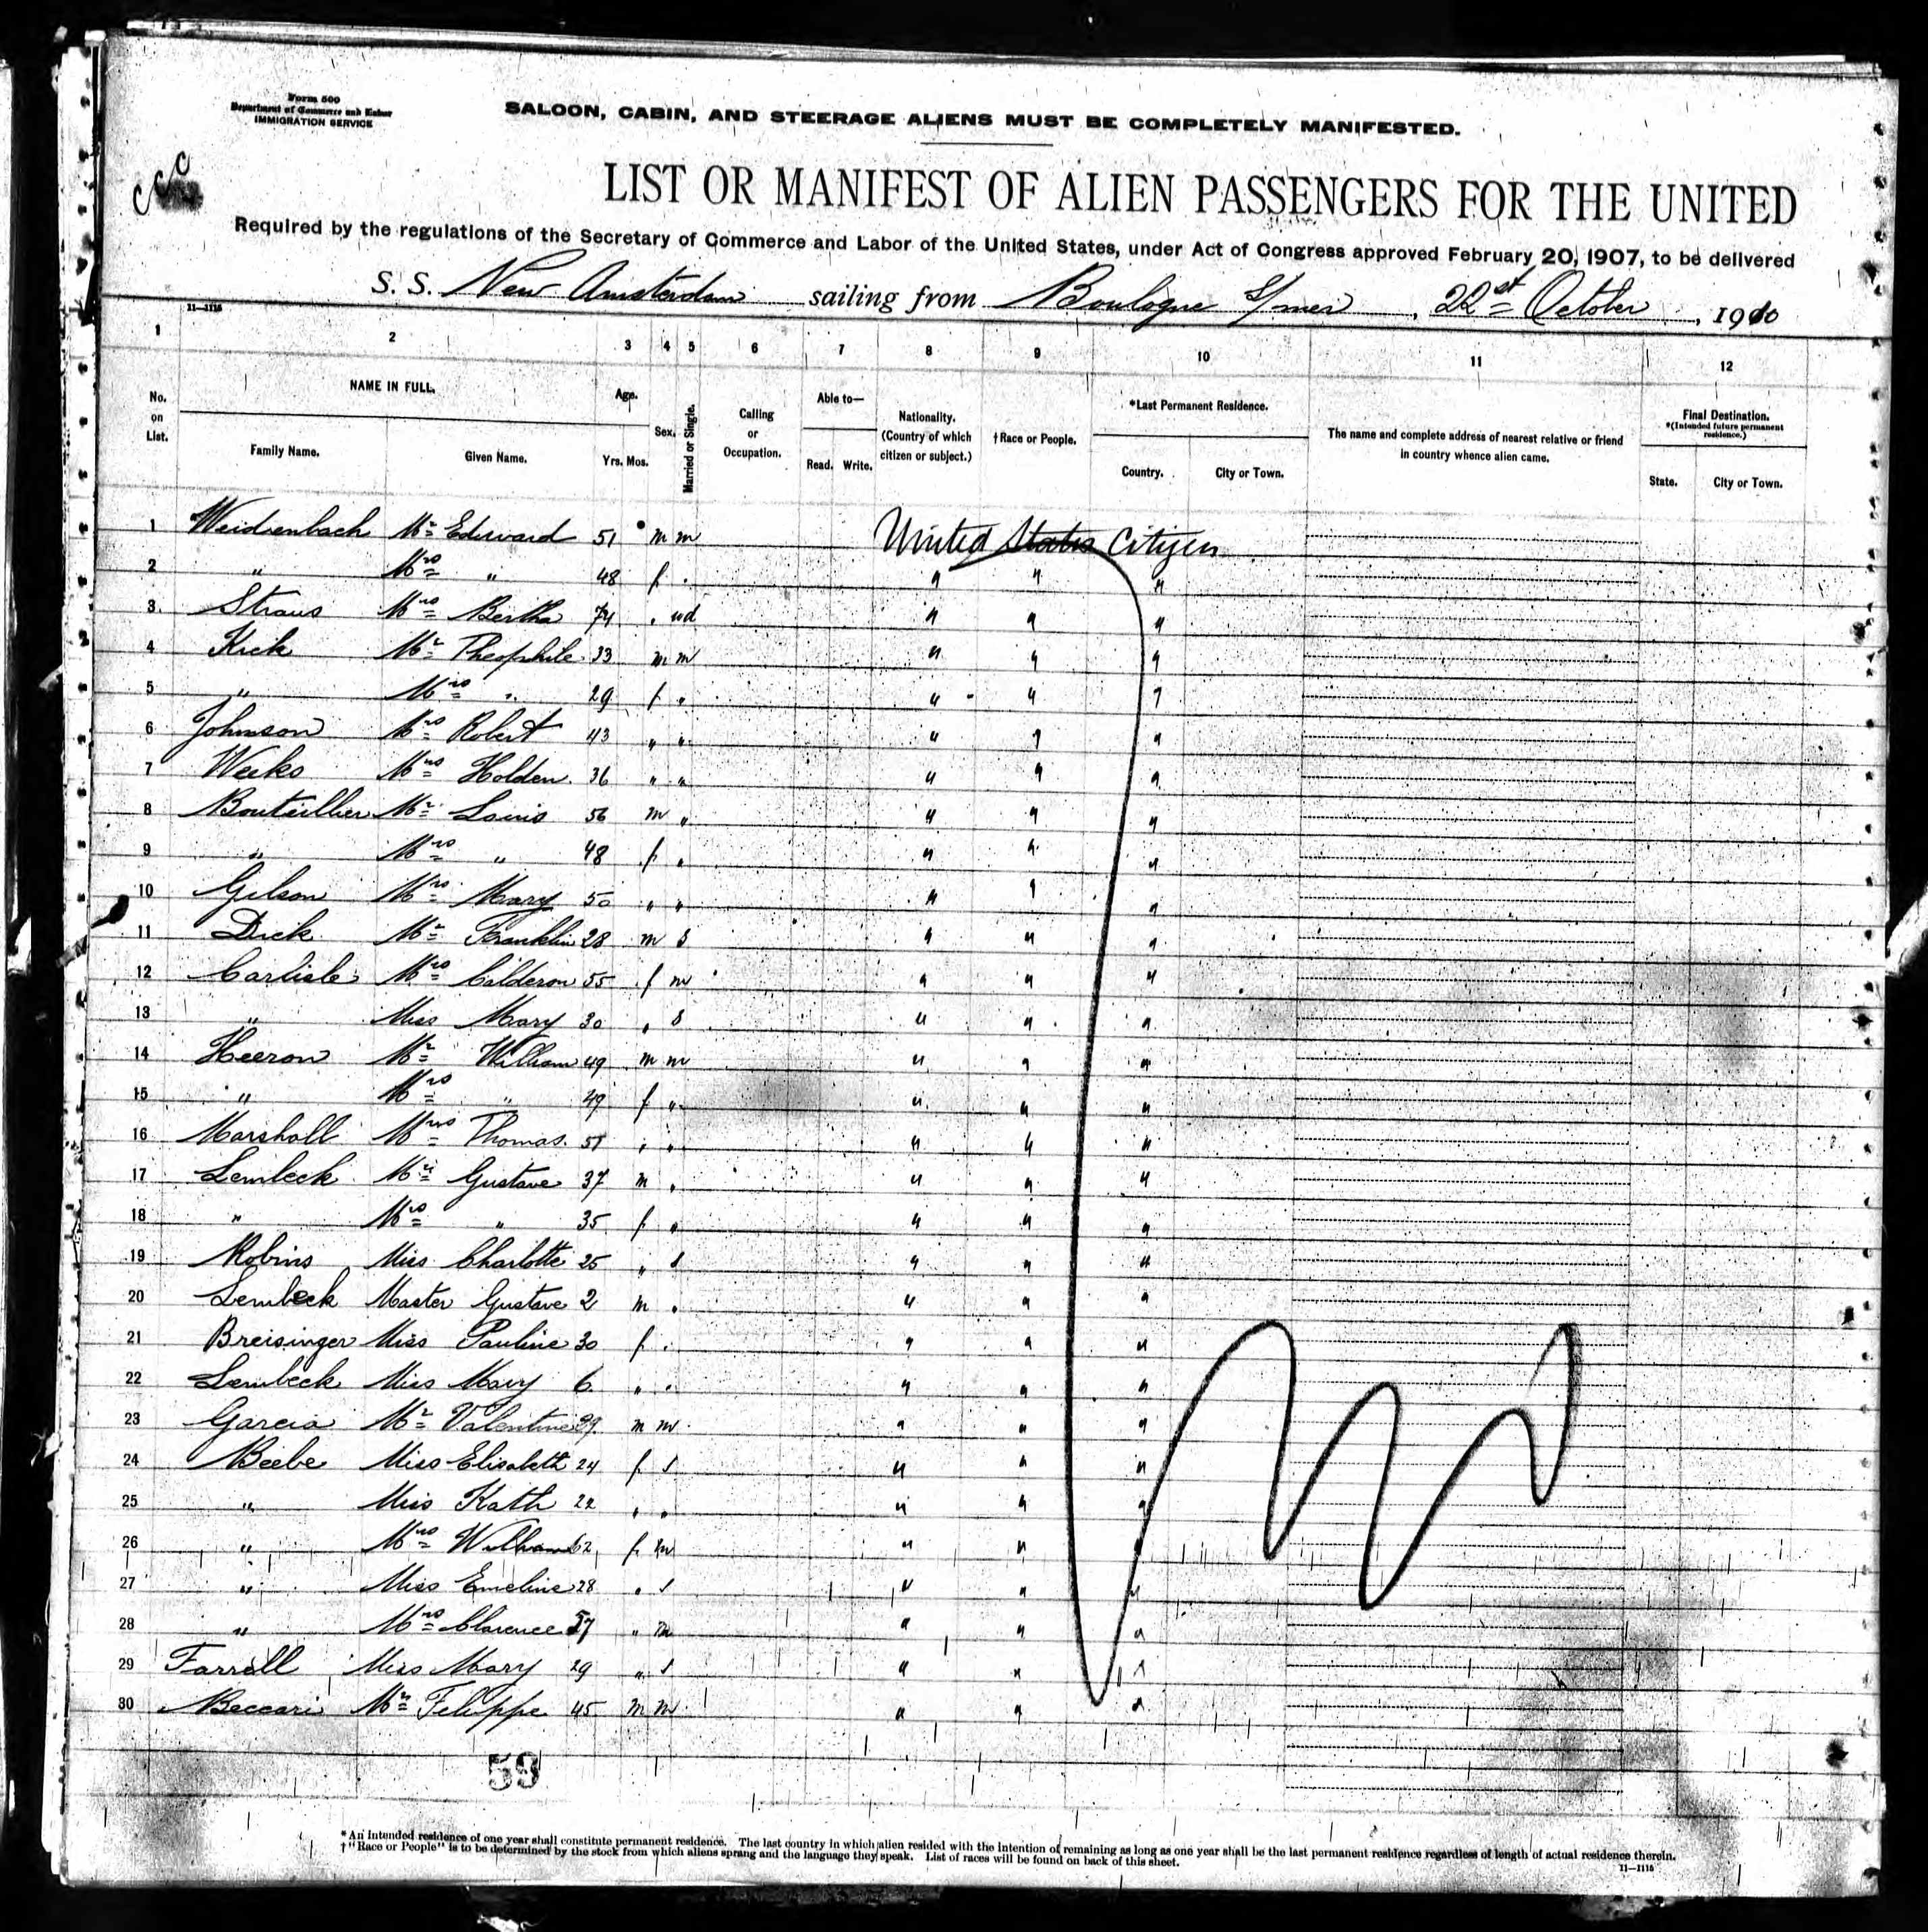 Form 500
Department of Commerce and Labor
IMMIGRATION SERVICE
SALOON, CABIN, AND STEERAGE ALIENS MUST BE COMPLETELY MANIFESTED.
LIST OR MANIFEST OF ALIEN PASSENGERS FOR THE UNITED
Required by the regulations of the Secretary of Commerce and Labor of the United States, under Act of Congress approved February 20, 1907, to be delivered
S. S. New Amsterdam sailing from Boulogne S/mer, 22st October, 1910
11—1115
1 2 3 4 5 6 7 8 9 10 11 12
No. on List. NAME IN FULL. Family Name. Given Name. Age. Yrs. Mos. Sex. Married or Single. Calling or Occupation. Able to— Read. Write. Nationality. (Country of which citizen or subject.) †Race or People. *Last Permanent Residence. Country. City or Town. The name and complete address of nearest relative or friend in country whence alien came. Final Destination. *(Intended future permanent residence.) State. City or Town.
1 Weidenbach Mr Edward 51 m m United States Citizen
2 " Mrs " 48 f " " " "
3 Straus Mrs Bertha 74 " wd " " "
4 Kick Mr Theophile 33 m m " " "
5 " Mrs " 29 f " " " "
6 Johnson Mrs Robert 43 " " " " "
7 Weeks Mrs Holden 36 " " " " "
8 Bouteillier Mr Louis 56 m " " " "
9 " Mrs " 48 f " " " "
10 Gilson Mrs Mary 50 " " " " "
11 Dick Mr Franklin 28 m s " " "
12 Carlisle Mrs Calderon 55 f m " " "
13 " Miss Mary 30 " s " " "
14 Heeron Mr William 49 m m " " "
15 " Mrs " 49 f " " " "
16 Marshall Mrs Thomas 51 " " " " "
17 Lembeck Mr Gustave 37 m " " " "
18 " Mrs " 35 f " " " "
19 Robins Miss Charlotte 25 " s " " "
20 Lembeck Master Gustave 2 m " " " "
21 Breisinger Miss Pauline 30 f " " " "
22 Lembeck Miss Mary 6 " " " " "
23 Garcia Mr Valentine 29 m m " " "
24 Beebe Miss Elisabeth 24 f s " " "
25 " Miss Kath 22 " " " " "
26 " Mrs William 62 f m " " "
27 " Miss Emeline 28 " s " " "
28 " Mrs Clarence " m " " "
29 Farrell Miss Mary 29 " s " " "
30 Beccari Mr Feluppe 45 m m " " "
59
*An intended residence of one year shall constitute permanent residence. The last country in which alien resided with the intention of remaining as long as one year shall be the last permanent residence regardless of length of actual residence therein.
†"Race or People" is to be determined by the stock from which aliens sprang and the language they speak. List of races will be found on back of this sheet.
11—1115